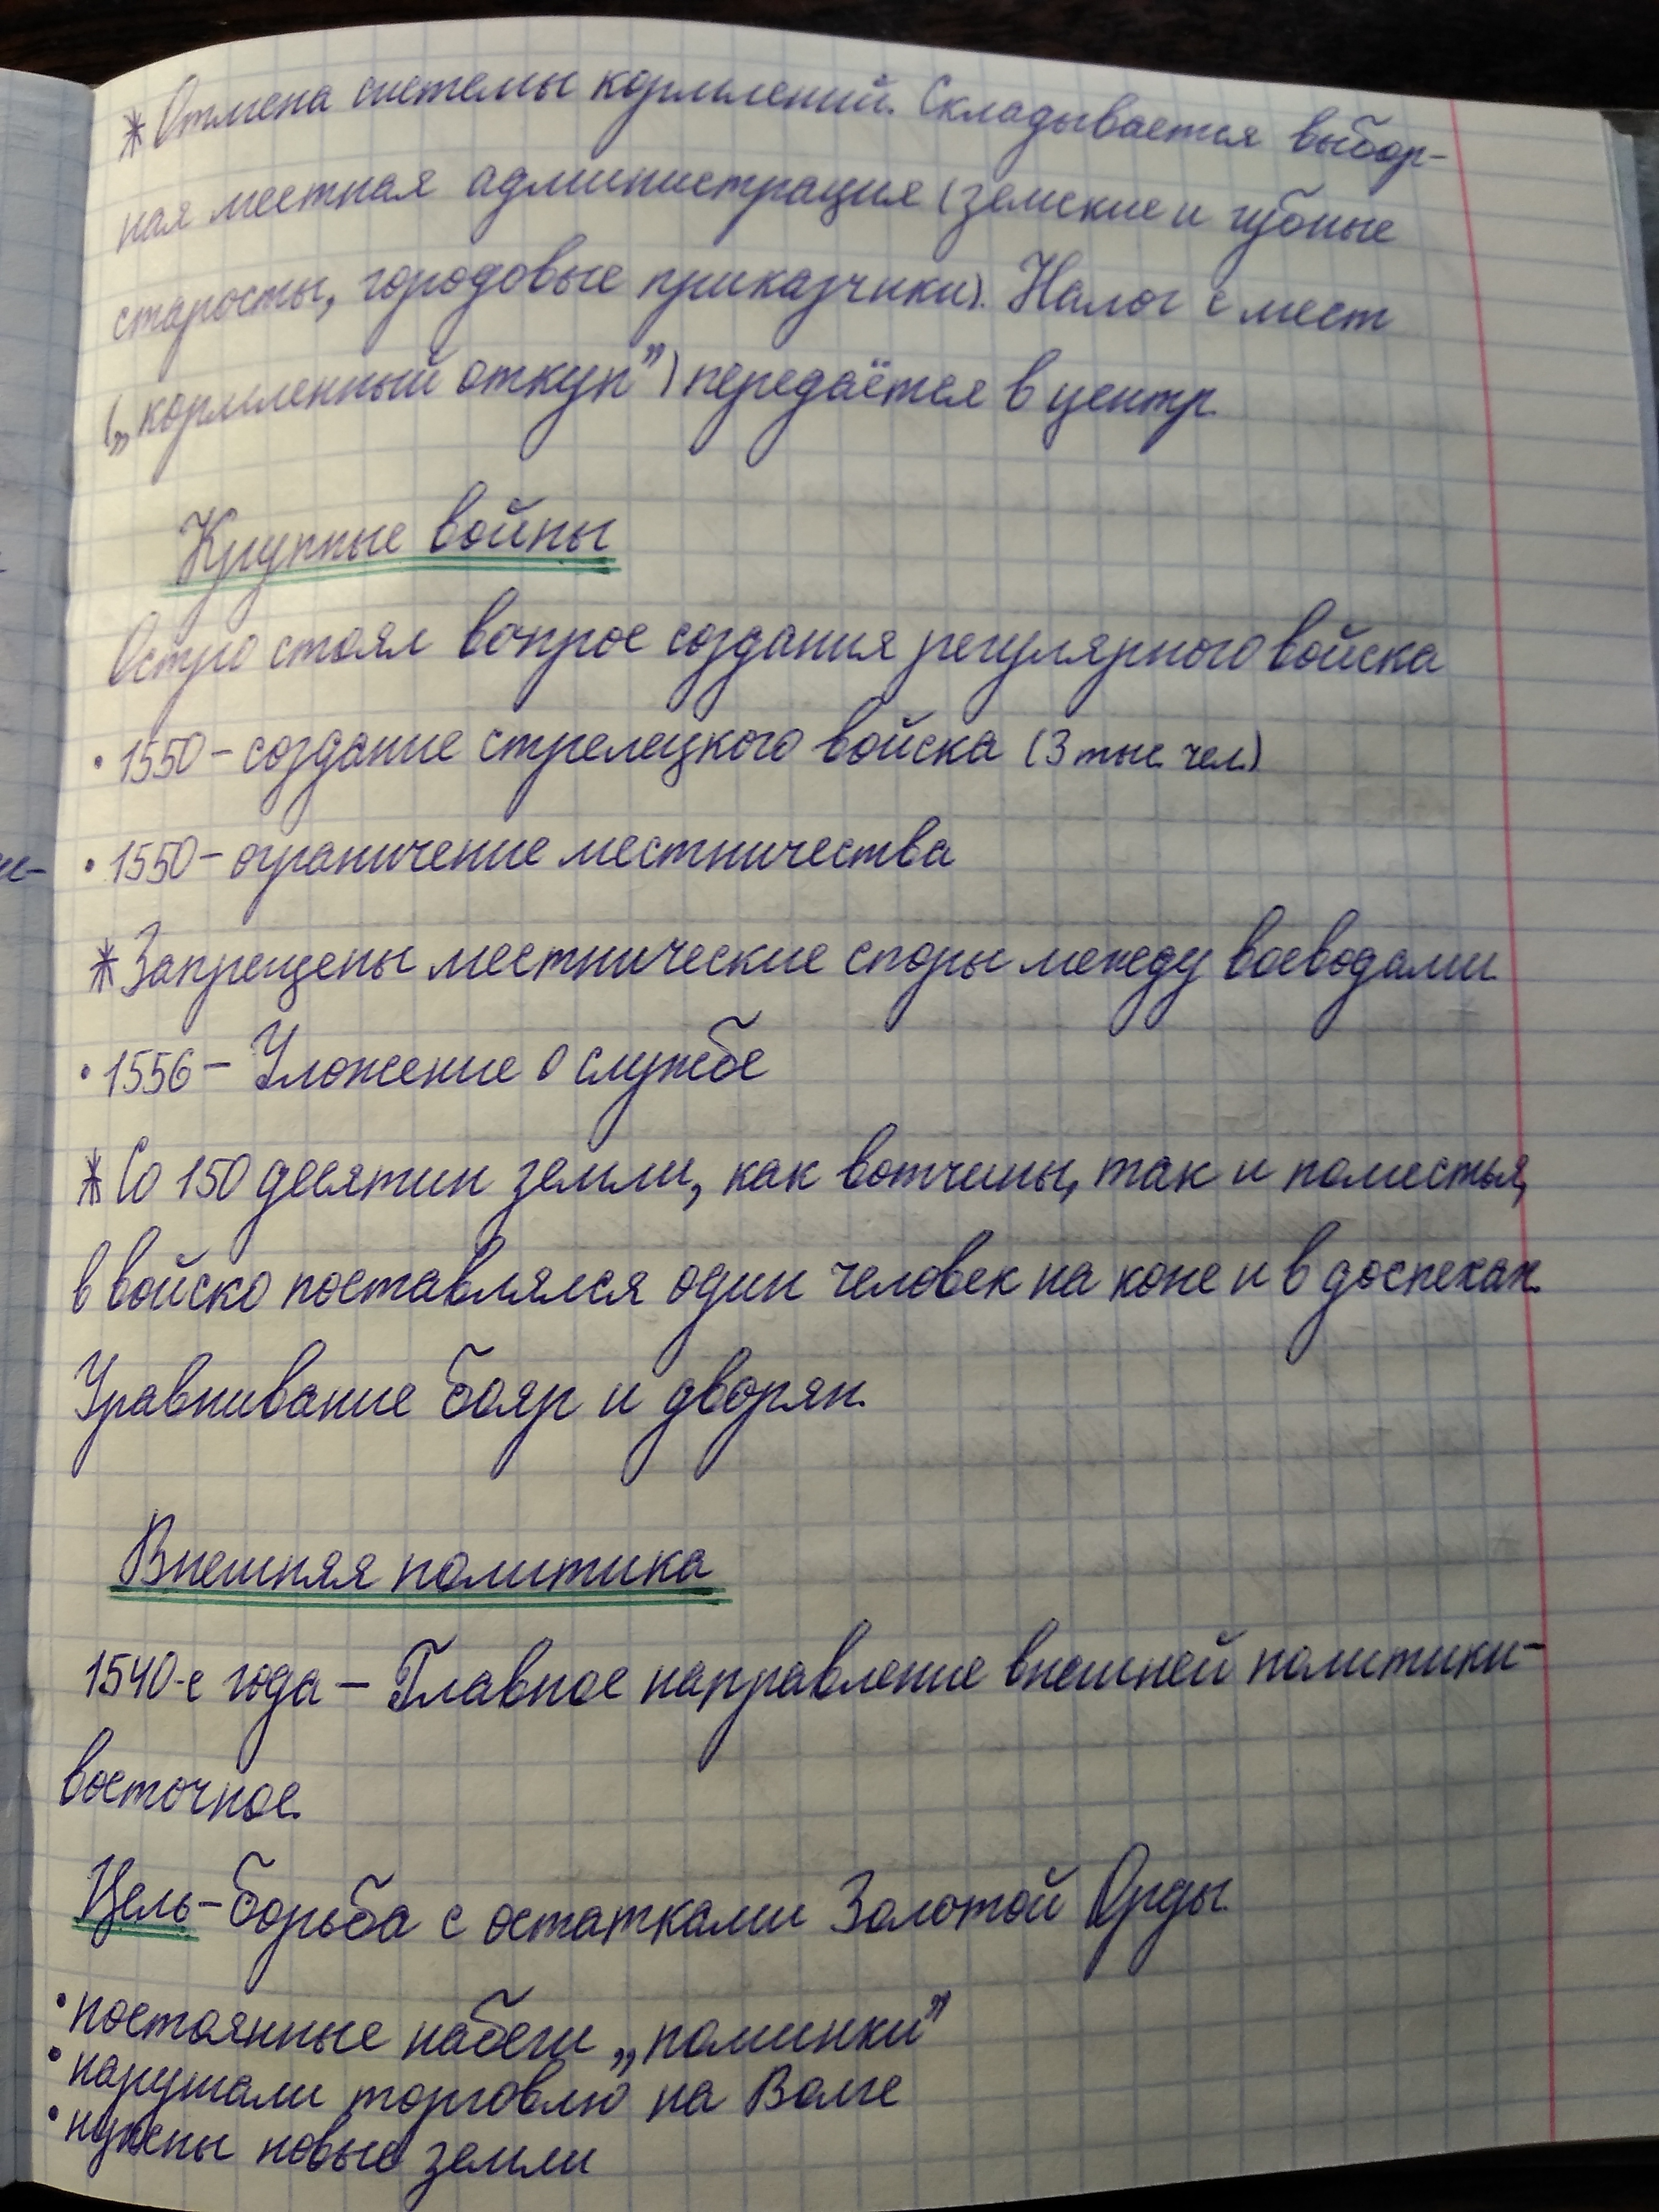 * Отмена системы кормлений. Складывается выбор-
ная местная администрация (земские и губные
старосты, городовые приказчики). Налог с мест
(„кормленный откуп”) передаётся в центр.
Крупные войны
Остро стоял вопрос создания регулярного войска
• 1550 – создание стрелецкого войска (3 тыс. чел.)
• 1550 – ограничение местничества
* Запрещены местнические споры между воеводами.
• 1556 – Уложение о службе
* Со 150 десятин земли, как вотчины, так и поместья,
в войско поставлялся один человек на коне и в доспехах.
Уравнивание бояр и дворян.
Внешняя политика
1540-е года – Главное направление внешней политики –
восточное.
Цель – борьба с остатками Золотой Орды.
• постоянные набеги „поминки”
• нарушали торговлю на Волге
• нужны новые земли